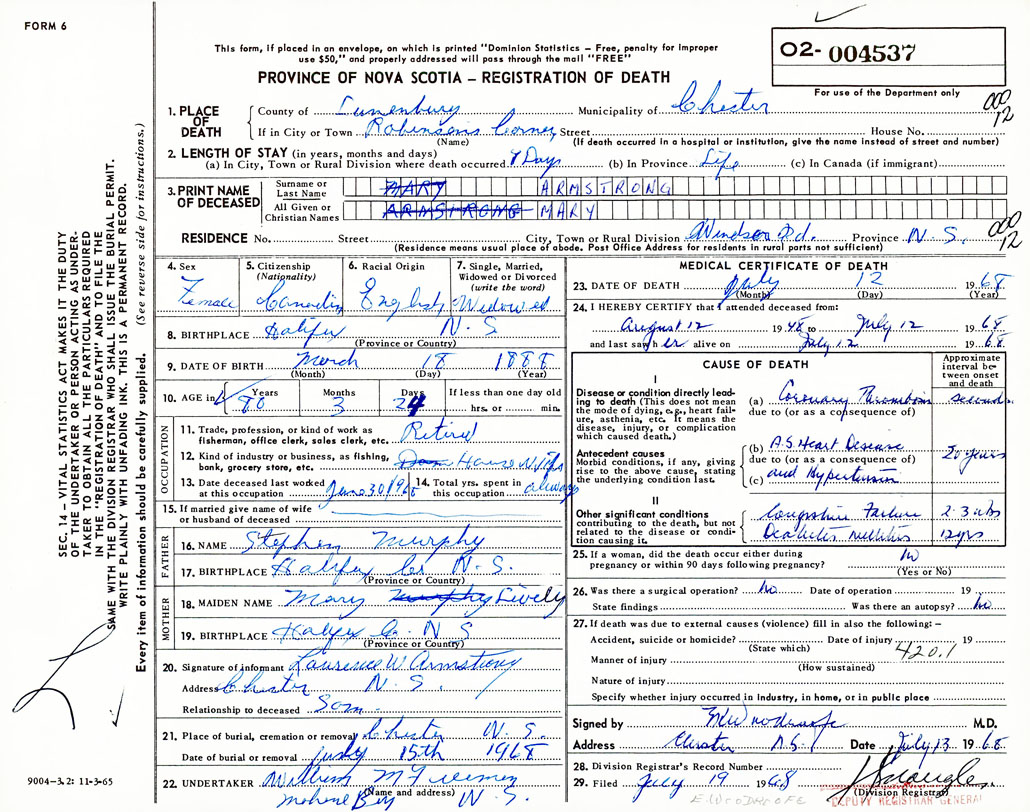 FORM 6
This form, if placed in an envelope, on which is printed "Dominion Statistics – Free, penalty for improper
use $50," and properly addressed will pass through the mail "FREE"
PROVINCE OF NOVA SCOTIA – REGISTRATION OF DEATH
O2- 004537
For use of the Department only
1. PLACE OF DEATH
County of Lunenburg Municipality of Chester
000 12
If in City or Town Robinsons Corner Street House No.
(Name) (If death occurred in a hospital or institution, give the name instead of street and number)
2. LENGTH OF STAY (in years, months and days)
(a) In City, Town or Rural Division where death occurred 9 Days (b) In Province Life (c) In Canada (if immigrant)
3. PRINT NAME OF DECEASED
Surname or Last Name MARY ARMSTRONG
All Given or Christian Names ARMSTRONG MARY
RESIDENCE No. Street City, Town or Rural Division Windsor Rd. Province N.S.
000 12
(Residence means usual place of abode. Post Office Address for residents in rural parts not sufficient)
4. Sex
Female
5. Citizenship (Nationality)
Canadian
6. Racial Origin
English
7. Single, Married, Widowed or Divorced (write the word)
Widowed
8. BIRTHPLACE Halifax N.S
(Province or Country)
9. DATE OF BIRTH March 18 1888
(Month) (Day) (Year)
10. AGE in Years Months Days If less than one day old
80 3 24 hrs. or min.
OCCUPATION
11. Trade, profession or kind of work as
fisherman, office clerk, sales clerk, etc. Retired
12. Kind of industry or business, as fishing,
bank, grocery store, etc. House Wife
13. Date deceased last worked
at this occupation June 30 1968
14. Total yrs. spent in
this occupation always
15. If married give name of wife
or husband of deceased
FATHER
16. NAME Stephen Murphy
17. BIRTHPLACE Halifax Co N.S.
(Province or Country)
MOTHER
18. MAIDEN NAME Mary Murphy Lively
19. BIRTHPLACE Halifax Co. N S
(Province or Country)
20. Signature of informant Laurence W. Armstrong
Address Chester N.S.
Relationship to deceased Son
21. Place of burial, cremation or removal Chester N.S.
Date of burial or removal July 15th 1968
22. UNDERTAKER William
(Name and address)
Mahone Bay N.S.
MEDICAL CERTIFICATE OF DEATH
23. DATE OF DEATH July 12 1968
(Month) (Day) (Year)
24. I HEREBY CERTIFY that I attended deceased from:
August 12 1948 to July 12 1968
and last saw her alive on July 12 1968
CAUSE OF DEATH
Approximate interval between onset and death
I
Disease or condition directly leading
to death (This does not mean
the mode of dying, e.g., heart failure,
asthenia, etc. It means the
disease, injury, or complication
which caused death.)
(a) Coronary Thrombosis seconds
due to (or as a consequence of)
Antecedent causes
Morbid conditions, if any, giving
rise to the above cause, stating
the underlying condition last.
(b) A.S Heart Disease 20 years
due to (or as a consequence of)
(c) and Hypertension
II
Other significant conditions
contributing to the death, but not
related to the disease or condition
causing it.
Congestive Failure 2-3 wks
Diabetes mellitus 12 yrs
25. If a woman, did the death occur either during
pregnancy or within 90 days following pregnancy? No
(Yes or No)
26. Was there a surgical operation? No Date of operation 19
State findings Was there an autopsy? No
27. If death was due to external causes (violence) fill in also the following: –
Accident, suicide or homicide? Date of injury 19
(State which)
420.1
Manner of injury
(How sustained)
Nature of injury
Specify whether injury occurred in Industry, in home, or in public place
Signed by EW Woodroofe M.D.
Address Chester N.S. Date July 13 1968
28. Division Registrar's Record Number
29. Filed July 19 1968
(Division Registrar)
E.W.WOODROOFE
DEPUTY REGISTRAR GENERAL
SEC. 14 – VITAL STATISTICS ACT MAKES IT THE DUTY
OF THE UNDERTAKER OR PERSON ACTING AS UNDER-
TAKER TO OBTAIN ALL THE PARTICULARS REQUIRED
IN THE "REGISTRATION OF DEATH" AND TO FILE THE
SAME WITH THE DIVISION REGISTRAR WHO SHALL ISSUE THE BURIAL PERMIT.
WRITE PLAINLY WITH UNFADING INK. THIS IS A PERMANENT RECORD.
Every item of information should be carefully supplied. (See reverse side for instructions.)
9004-3.2: 11-3-65